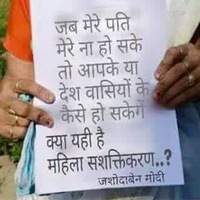 जब मेरे पति
मेरे ना हो सके
तो आपके या
देश वासियों के
कैसे हो सकेगें
क्या यही है
महिला सशक्तिकरण..?
जशोदाबेन मोदी